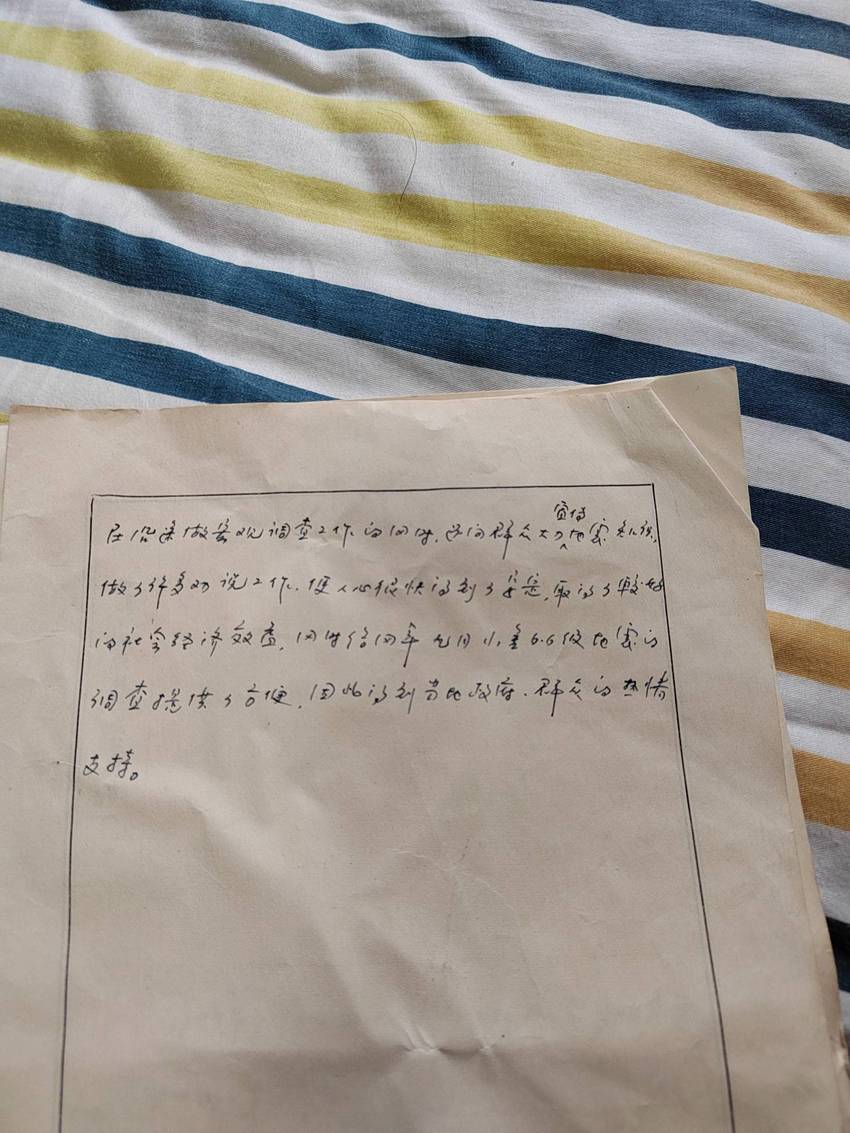 在沿途做宏观调查工作的同时，还向群众大力宣传地震知识，
做了许多劝说工作，使人心很快得到了安定，取得了较好
的社会经济效益，同时给同年九月小金6.6级地震的
调查提供了方便，因此得到当地政府、群众的热情
支持。